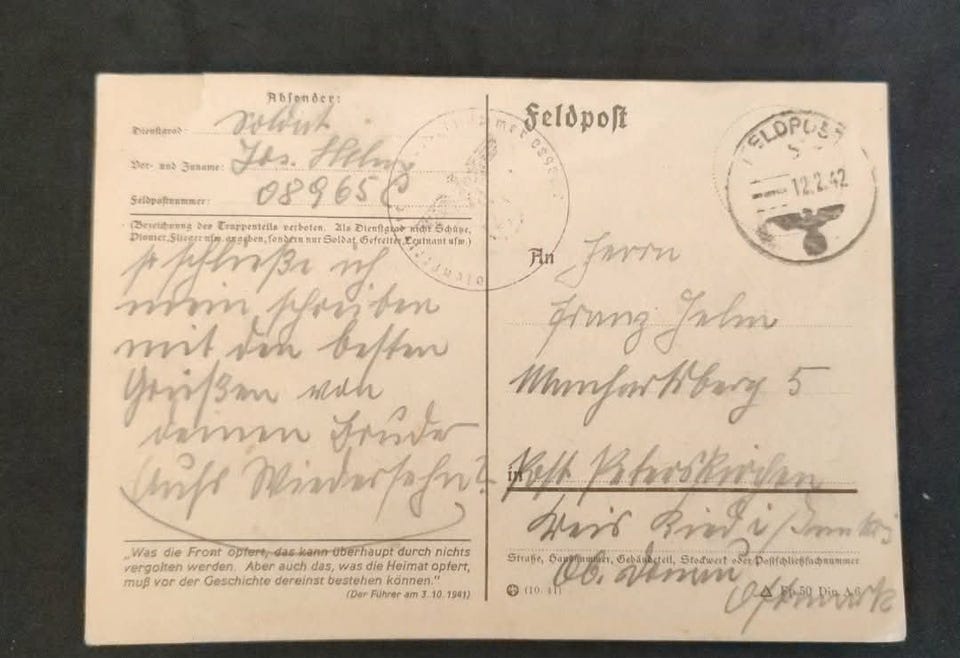 Absender:
Dienstgrad: Soldat
Vor- und Zuname: Jos. Helm
Feldpostnummer: 08965 C
(Bezeichnung des Truppenteils verboten. Als Dienstgrad nicht Schütze,
Pionier, Flieger usw. angeben, sondern nur Soldat, Gefreiter, Leutnant usw.)
so schließe ich
mein schreiben
mit den besten
Grüßen von
deinen Bruder
Aufs Wiedersehn
„Was die Front opfert, das kann überhaupt durch nichts
vergolten werden. Aber auch das, was die Heimat opfert,
muß vor der Geschichte dereinst bestehen können."
(Der Führer am 3.10.1941)
Feldpost
FELDPOST
12.2.42
An Herrn
Franz Helm
5
in Post Peterskirchen
Kreis Ried i
Straße, Hausnummer, Gebäudeteil, Stockwerk oder Postschließfachnummer
Ob. Donau
(10. 41)
Fp 50 Din A 6
Ostmark